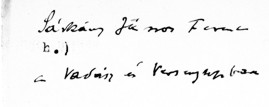 Sárkány János Ferenc
h.)
a Vadász és Versenylapban